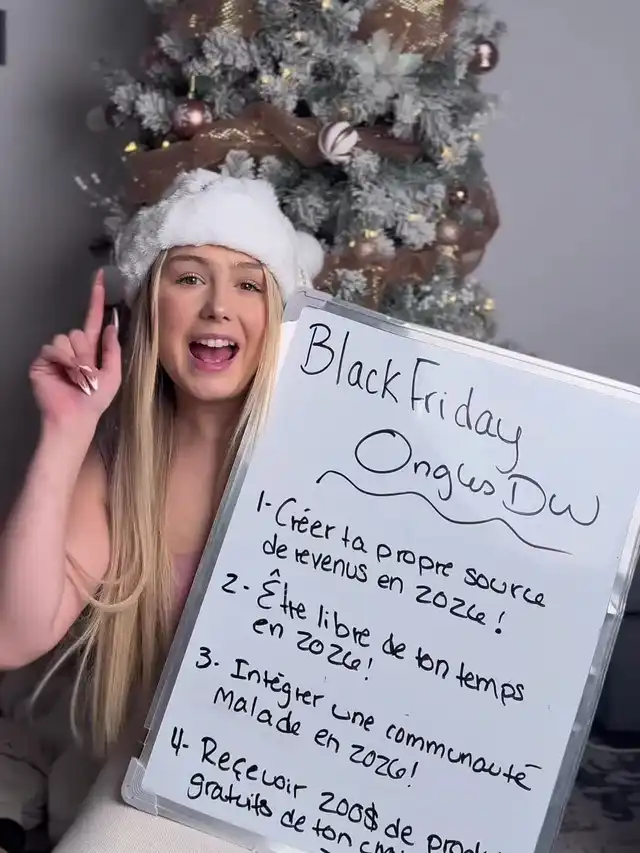 Black Friday
Ongles DW
1- Créer ta propre source
de revenus en 2026!
2- Être libre de ton temps
en 2026!
3. Intégrer une communauté
malade en 2026!
4- Reçevoir 200$ de
gratuits de ton